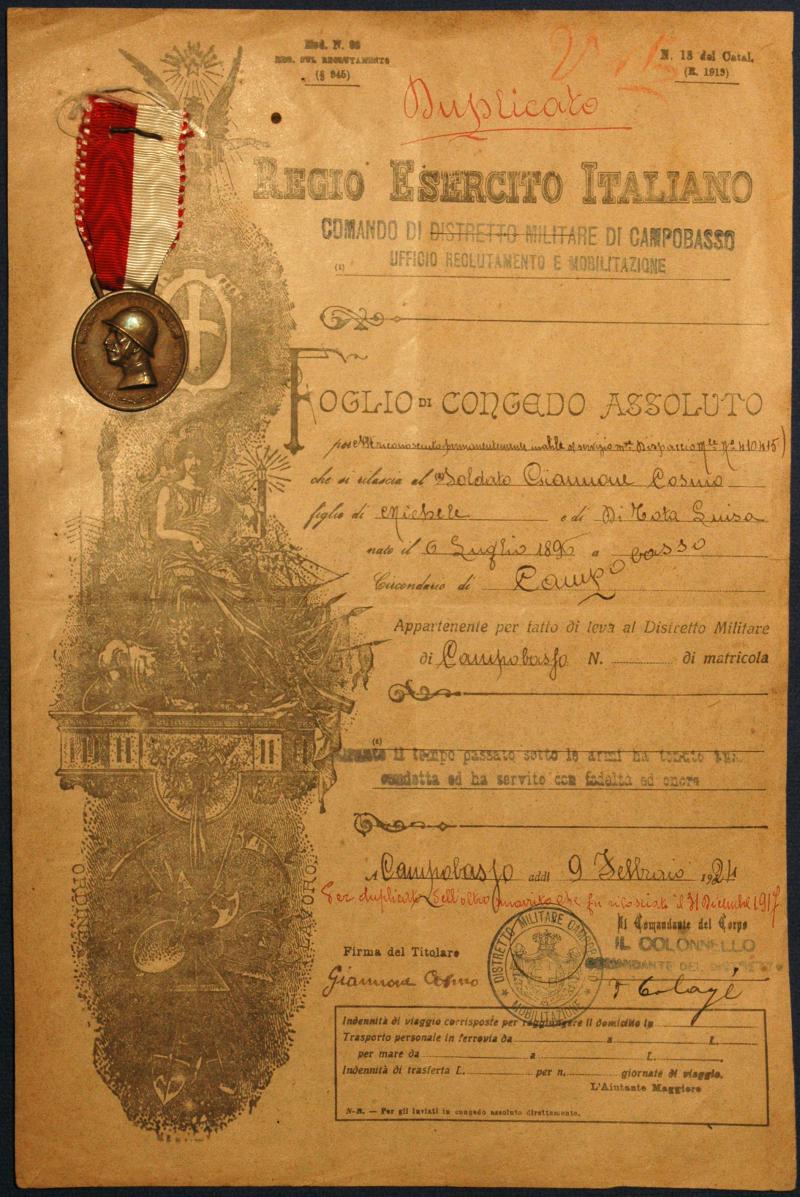 Mod. N. 98
REG. SUL RECLUTAMENTO
(§ 945)
N. 13 del Catal.
(R. 1913)
Duplicato
REGIO ESERCITO ITALIANO
COMANDO DI DISTRETTO MILITARE DI CAMPOBASSO
UFFICIO RECLUTAMENTO E MOBILITAZIONE
(1)
FOGLIO DI CONGEDO ASSOLUTO
riconosciuto permanentemente inabile al servizio Dispaccio Mle No 410415)
che si rilascia al Soldato Giannone Cosmo
figlio di Michele e di Di Tota Luisa
nato il 6 Luglio 1896 a Campobasso
Circondario di Campobasso
Appartenente per fatto di leva al Distretto Militare
di Campobasso N. di matricola
Durante il tempo passato sotto le armi ha tenuto buona
condotta ed ha servito con fedeltà ed onore
ORDINE
LAVORO
A Campobasso addì 9 Febbraio 1924
Per duplicato dell'altro smarrito che fu rilasciato il 31 Dicembre 1917
Il Comandante del Corpo
IL COLONNELLO
COMANDANTE DEL DISTRETTO
Firma del Titolare
Giannone Cosmo
DISTRETTO MILITARE CAMPOBASSO
MOBILITAZIONE
Indennità di viaggio corrisposte per raggiungere il domicilio in
Trasporto personale in ferrovia da a L.
per mare da a L.
Indennità di trasferta L. per n. giornate di viaggio.
L'Aiutante Maggiore
N-B. — Per gli inviati in congedo assoluto direttamente.